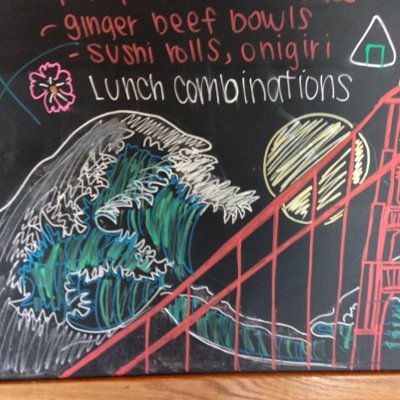 - ginger beef bowls
- sushi rolls, onigiri
Lunch Combinations